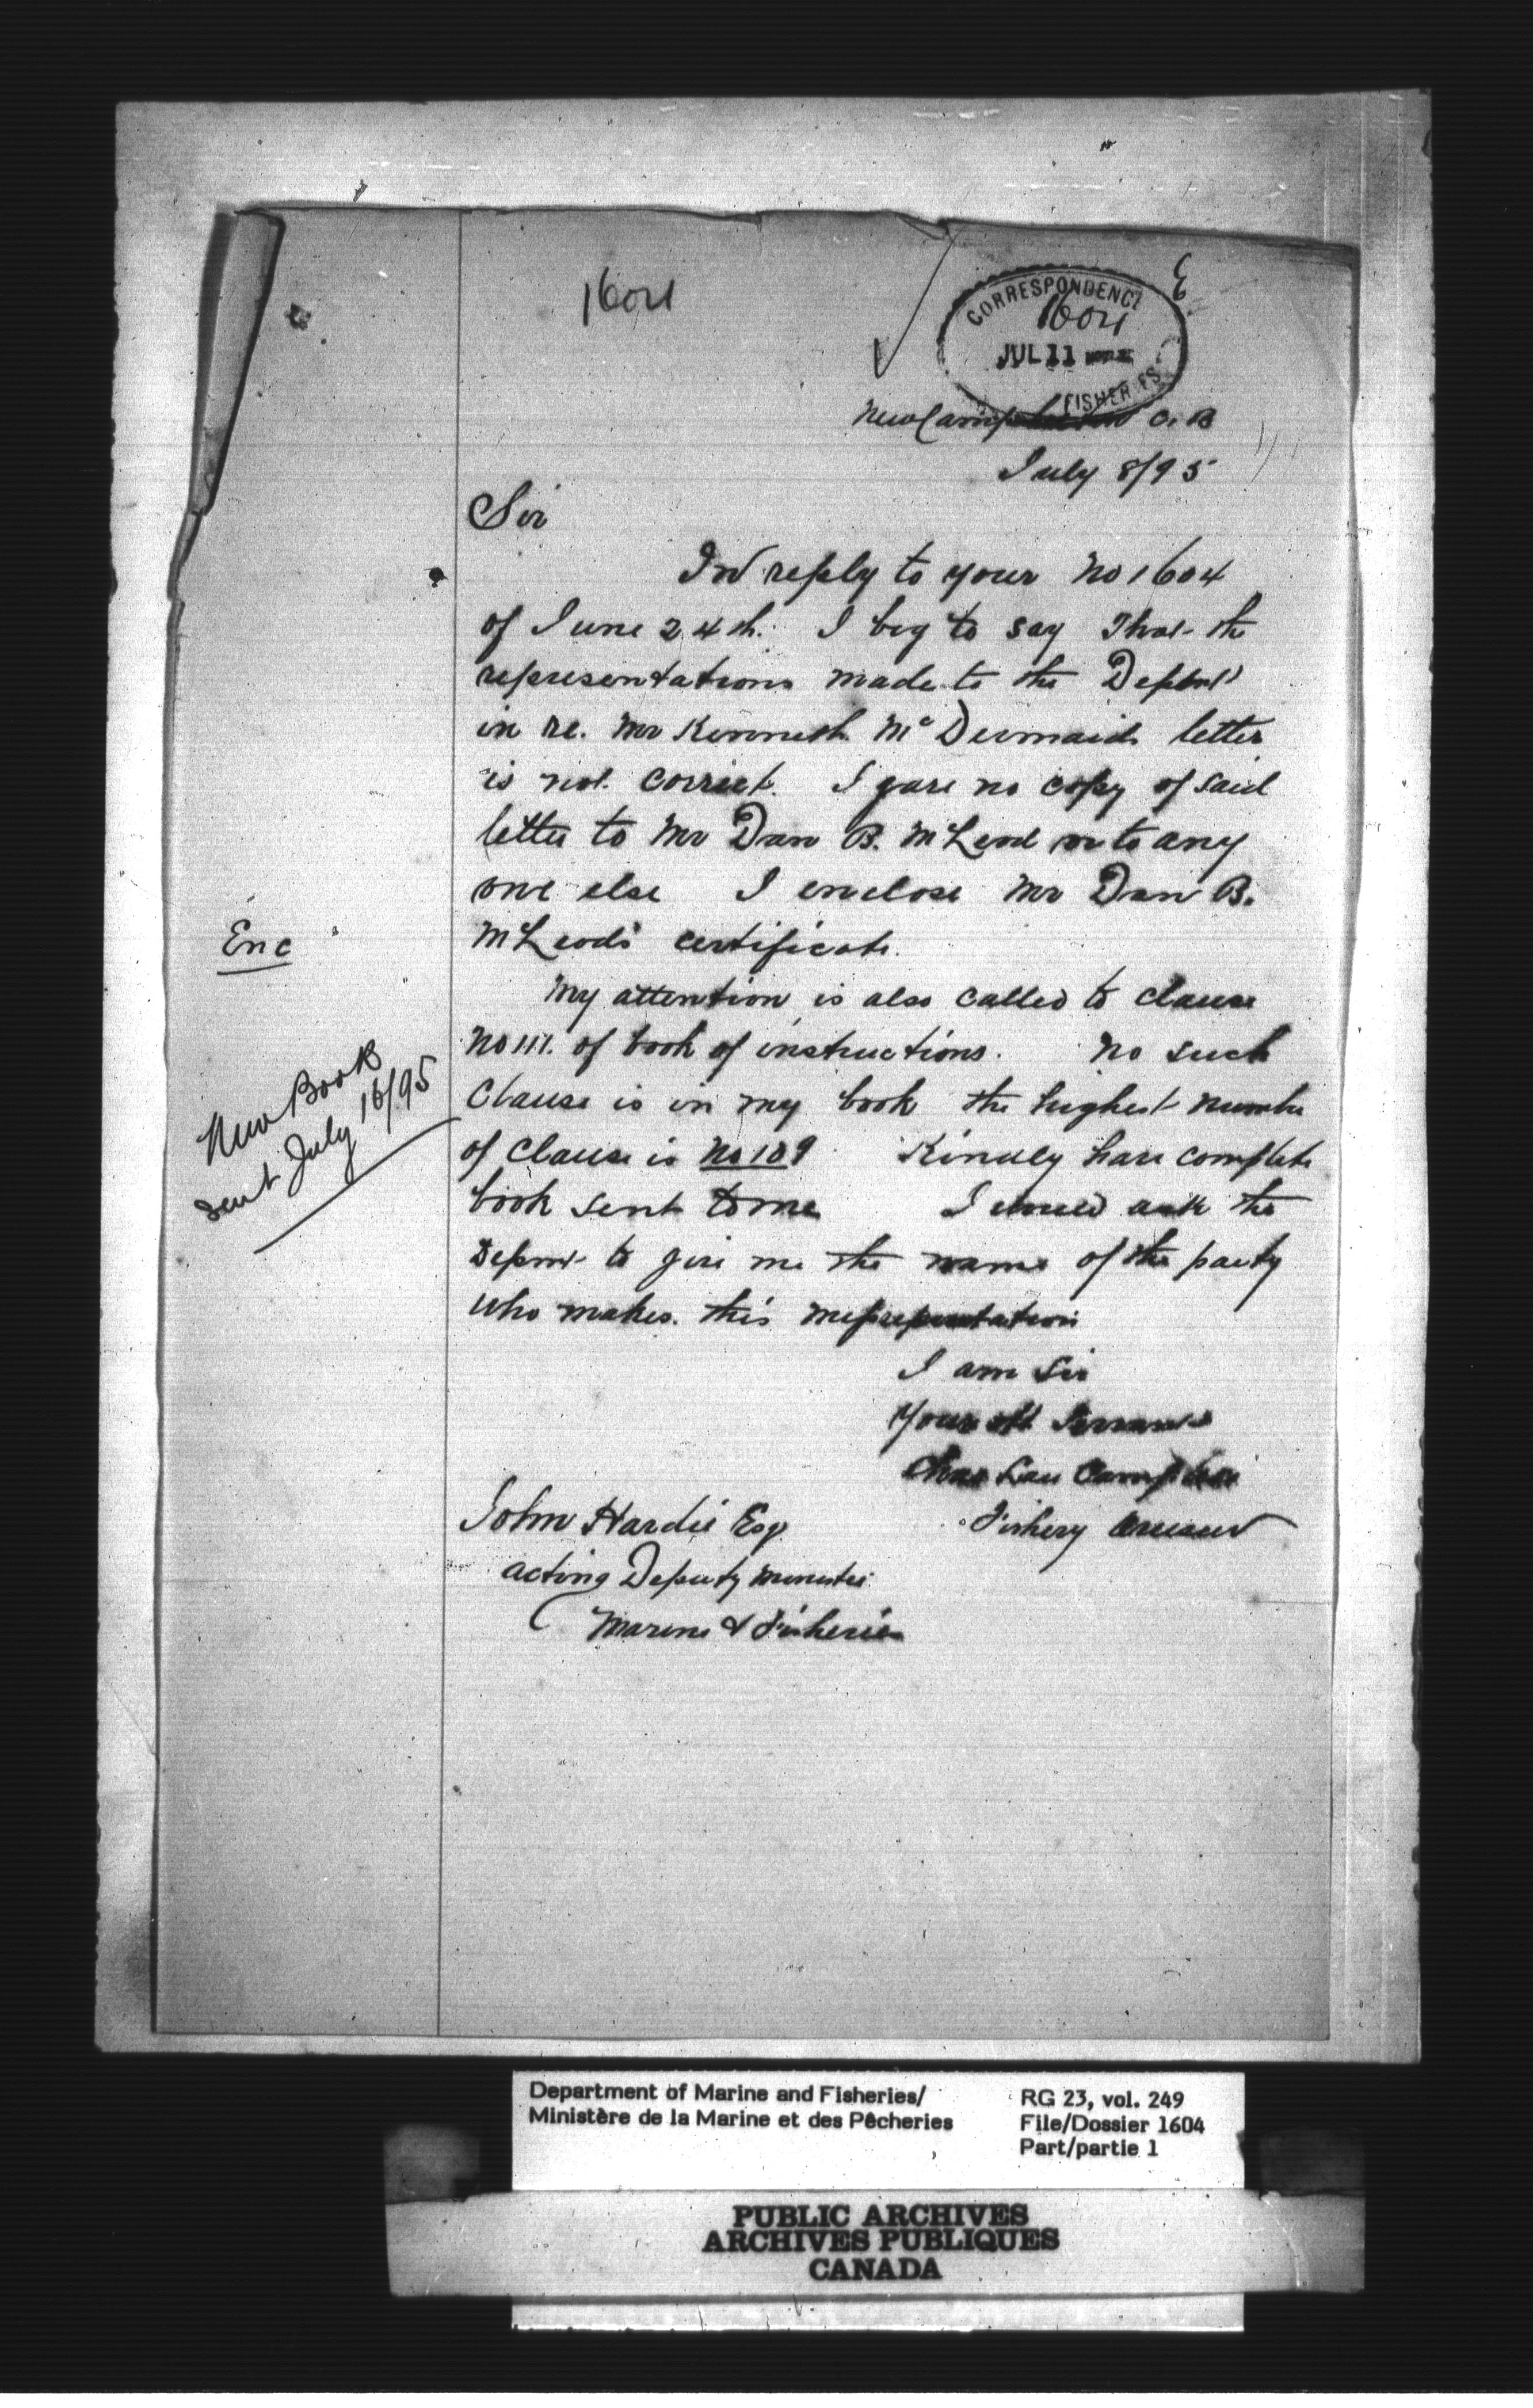 1604
CORRESPONDENCE
1604
JUL 11
FISHERIES
New Campbellton C. B
July 8/95
Sir
In reply to your No 1604
of June 24th. I beg to say That the
representations made to the Depmt
in re. Mr Kenneth McDermaids letter
is not correct. I gave no copy of said
letter to Mr Dan B. McLeod or to any
one else I enclose Mr Dan B.
McLeods certificate.
Enc
My attention is also called to clause
No 111. of book of instructions. No such
Clause is in my book the highest number
of Clause is No 109 Kindly have complete
book sent to me I would ask the
Depmt to give me the name of the party
who makes this misrepresentation
New Book
sent July 16/95
I am Sir
Your obt Servant
Chas Campbell
Fishery Overseer
John Hardie Esq
acting Deputy Minister
Marine & Fisheries
Department of Marine and Fisheries/
Ministère de la Marine et des Pêcheries
RG 23, vol. 249
File/Dossier 1604
Part/partie 1
PUBLIC ARCHIVES
ARCHIVES PUBLIQUES
CANADA